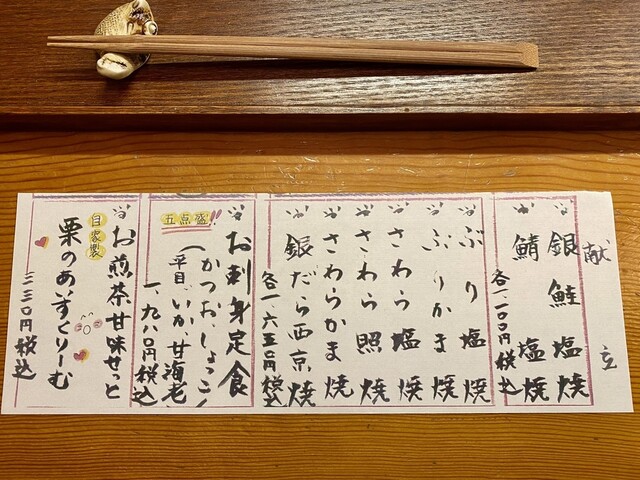 献立
銀鮭塩焼
鯖塩焼
各一、一〇〇円税込
ぶり塩焼
ぶりかま焼
さわら塩焼
さわら照焼
さわらかま焼
銀だら西京焼
各一、六五〇円税込
お刺身定食
五点盛!!
(かつお、しょっこ
平目、いか、甘海老)
一、九八〇円税込
お煎茶甘味せっと
自家製
栗のあいすくりーむ
三三〇円税込